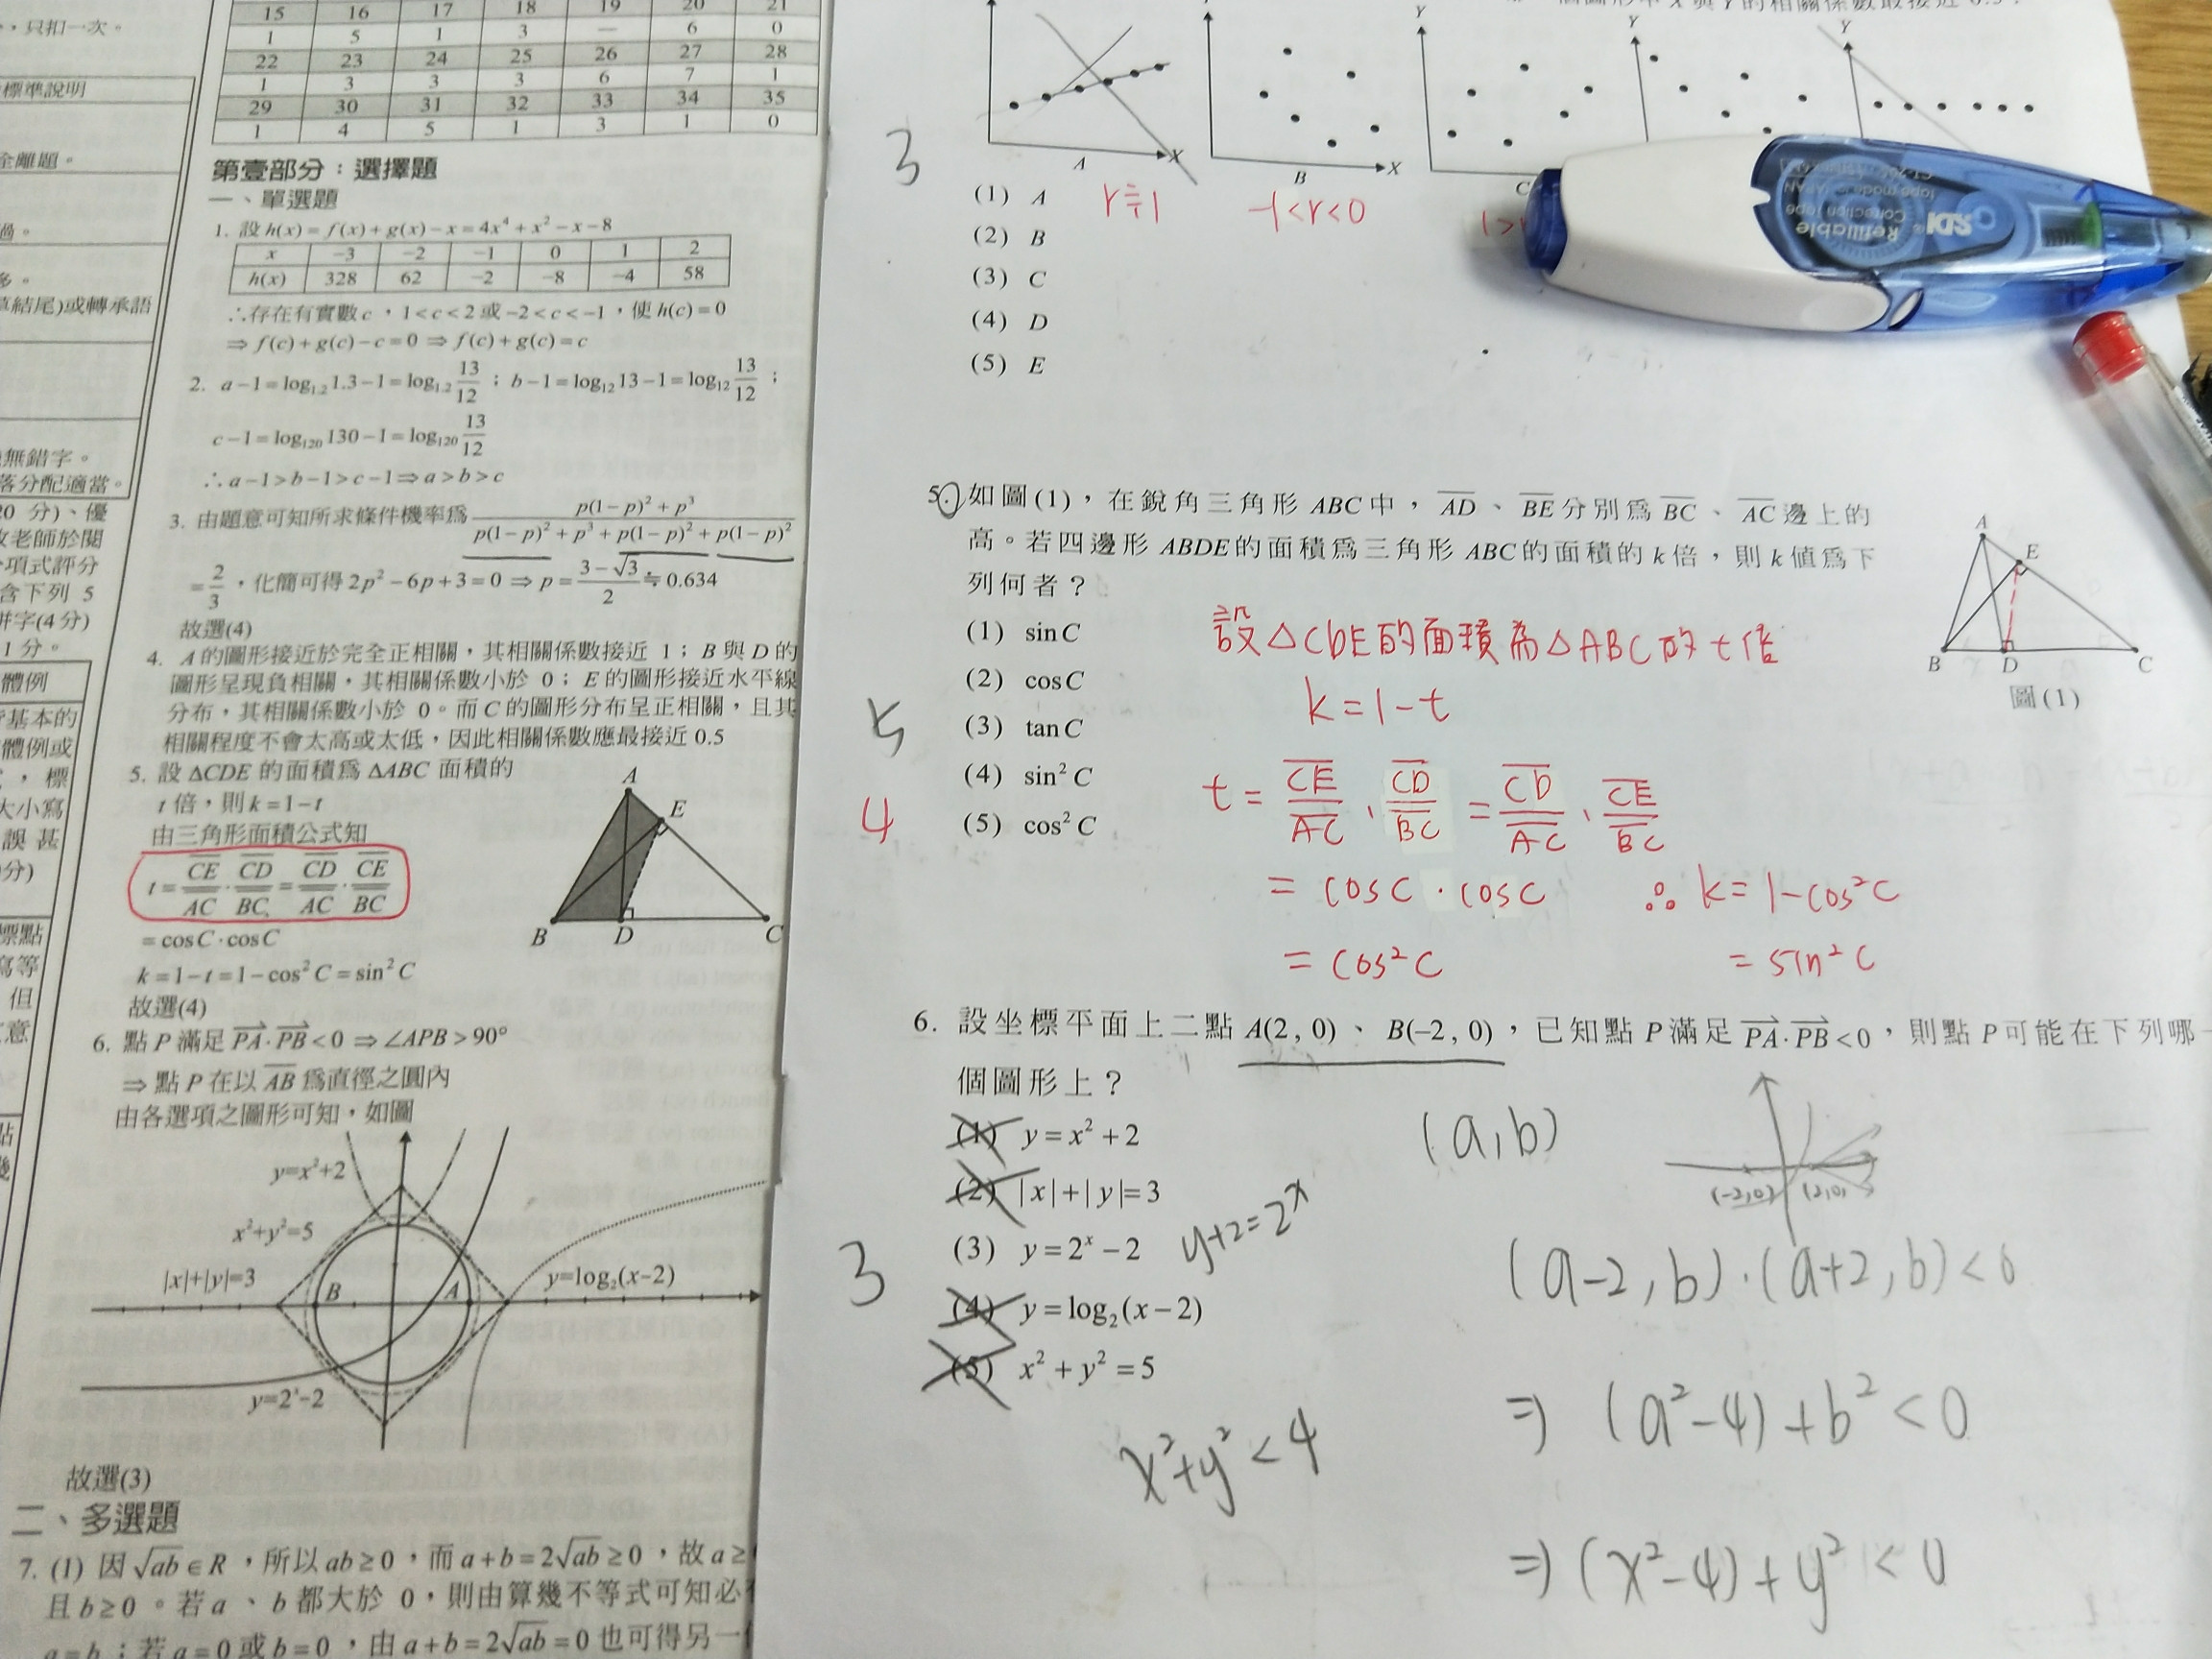 ，只扣一次。
標準說明
全離題。
過。
多。
草結尾)或轉承語
無錯字。
落分配適當。
20 分)、優
改老師於閱
分項式評分
含下列 5
拼字(4分)
1分。
體例
基本的
體例或
，標
大小寫
誤甚
分)
標點
寫等
但
意
15 16 17 18 19 20 21
1 5 1 3 — 6 0
22 23 24 25 26 27 28
1 3 3 3 6 7 1
29 30 31 32 33 34 35
1 4 5 1 3 1 0
第壹部分：選擇題
一、單選題
1. 設 h(x) = f(x) + g(x) − x = 4x⁴ + x² − x − 8
x −3 −2 −1 0 1 2
h(x) 328 62 −2 −8 −4 58
∴存在有實數 c，1 < c < 2 或 −2 < c < −1，使 h(c) = 0
⇒ f(c) + g(c) − c = 0 ⇒ f(c) + g(c) = c
2. a − 1 = log₁.₂ 1.3 − 1 = log₁.₂ 13/12；b − 1 = log₁₂ 13 − 1 = log₁₂ 13/12；
c − 1 = log₁₂₀ 130 − 1 = log₁₂₀ 13/12
∴ a − 1 > b − 1 > c − 1 ⇒ a > b > c
3. 由題意可知所求條件機率為 (p(1−p)² + p³)/(p(1−p)² + p³ + p(1−p)² + p(1−p)²)
= 2/3，化簡可得 2p² − 6p + 3 = 0 ⇒ p = (3 − √3)/2 ≒ 0.634
故選(4)
4. A 的圖形接近於完全正相關，其相關係數接近 1；B 與 D 的
圖形呈現負相關，其相關係數小於 0；E 的圖形接近水平線
分布，其相關係數小於 0。而 C 的圖形分布呈正相關，且其
相關程度不會太高或太低，因此相關係數應最接近 0.5
5. 設 ΔCDE 的面積為 ΔABC 面積的
t 倍，則 k = 1 − t
由三角形面積公式知
t = C̅E̅/A̅C̅ · C̅D̅/B̅C̅ = C̅D̅/A̅C̅ · C̅E̅/B̅C̅
= cos C · cos C
k = 1 − t = 1 − cos² C = sin² C
故選(4)
A
E
B D C
6. 點 P 滿足 PA⃗ · PB⃗ < 0 ⇒ ∠APB > 90°
⇒ 點 P 在以 A̅B̅ 為直徑之圓內
由各選項之圖形可知，如圖
y=x²+2
x²+y²=5
|x|+|y|=3
B A
y=log₂(x−2)
y=2ˣ−2
故選(3)
二、多選題
7. (1) 因 √ab ∈ R，所以 ab ≥ 0，而 a + b = 2√ab ≥ 0，故 a ≥
且 b ≥ 0。若 a、b 都大於 0，則由算幾不等式可知必
a = b；若 a = 0 或 b = 0，由 a + b = 2√ab = 0 也可得另一
Y Y Y
A X
B X
C
3
(1) A
r≒1
-1<r<0
1>r
(2) B
(3) C
(4) D
(5) E
KTS
Refillable
Correction tape
5. 如圖(1)，在銳角三角形 ABC 中，A̅D̅、B̅E̅ 分別為 B̅C̅、A̅C̅ 邊上的
高。若四邊形 ABDE 的面積為三角形 ABC 的面積的 k 倍，則 k 值為下
列何者？
(1) sin C
(2) cos C
(3) tan C
(4) sin² C
(5) cos² C
5
4
設△CDE的面積為△ABC的t倍
k=1-t
t = C̅E̅/A̅C̅ · C̅D̅/B̅C̅ = C̅D̅/A̅C̅ · C̅E̅/B̅C̅
= cosC · cosC ∴ k=1-cos²C
= cos²C = sin²C
A
E
B D C
圖(1)
6. 設坐標平面上二點 A(2, 0)、B(−2, 0)，已知點 P 滿足 PA⃗ · PB⃗ < 0，則點 P 可能在下列哪一
個圖形上？
(1) y = x² + 2
(2) |x| + |y| = 3
(3) y = 2ˣ − 2
(4) y = log₂(x − 2)
(5) x² + y² = 5
3
y+2=2ˣ
x²+y²<4
(a,b)
(-2,0) (2,0)
(a-2,b)·(a+2,b)<0
⇒ (a²-4)+b²<0
⇒ (x²-4)+y²<0